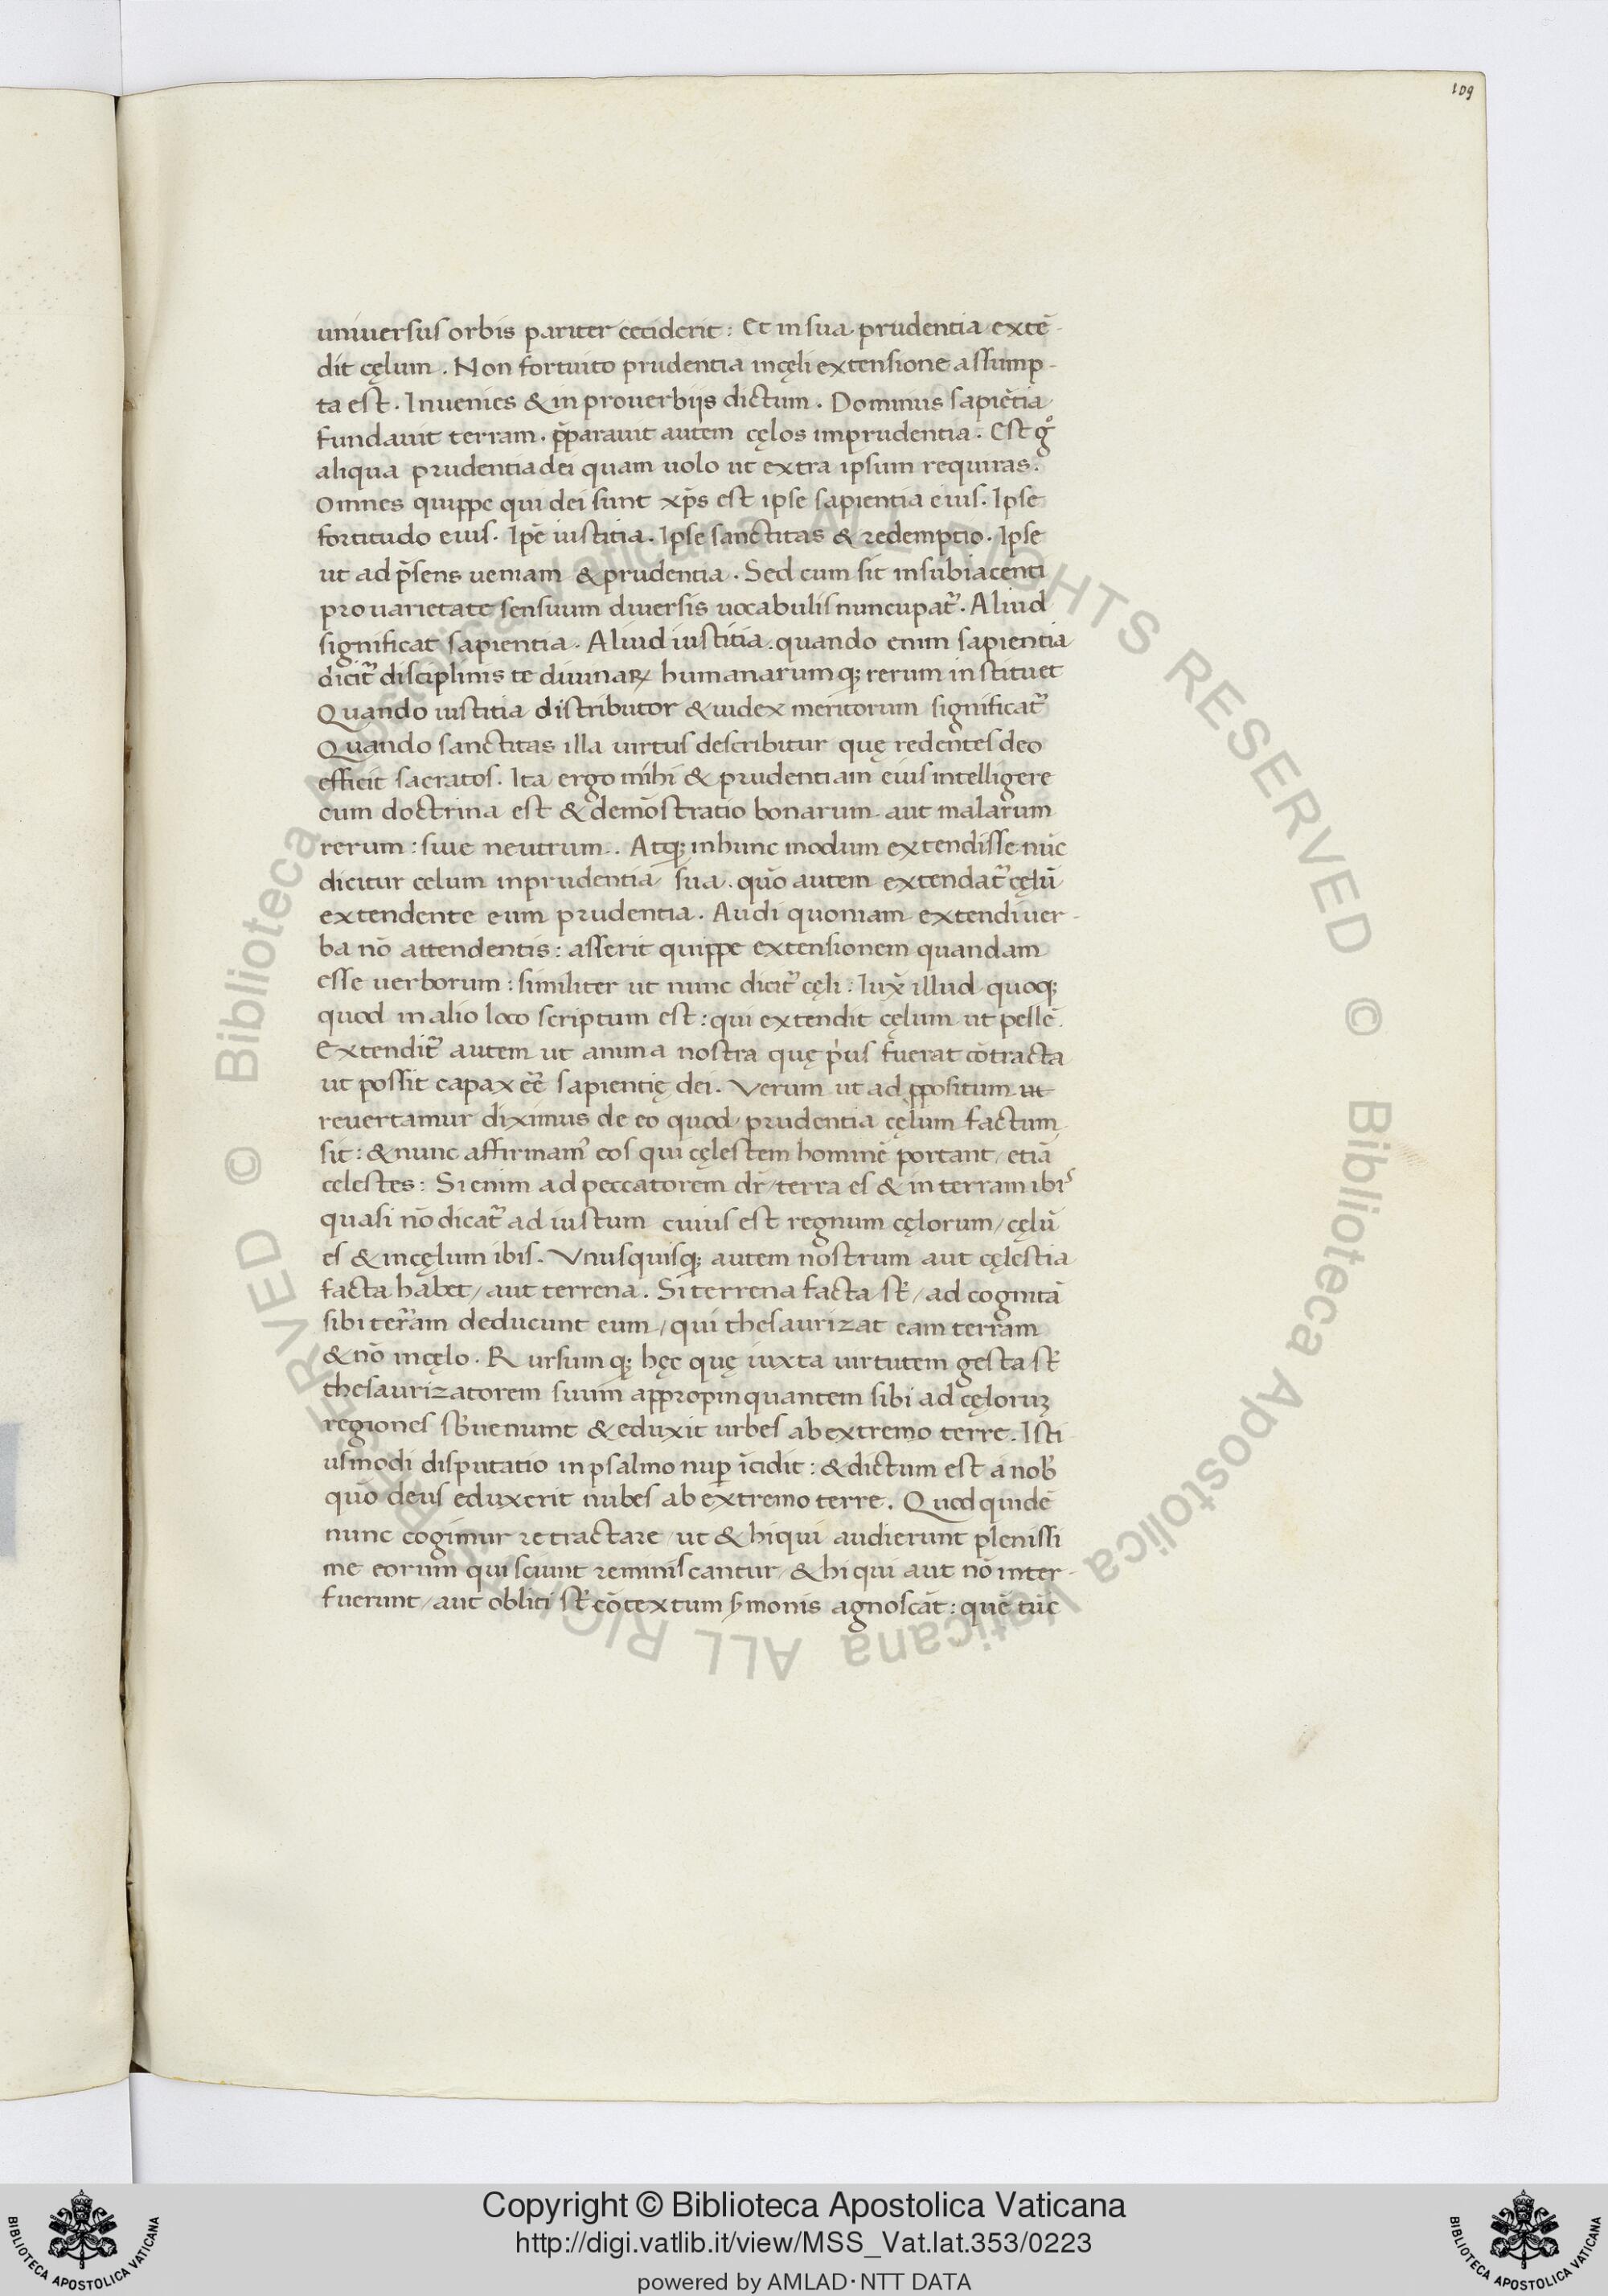 109
universus orbis pariter ceciderit: Et in sua prudentia extē-
dit cęlum. Non fortuito prudentia in cęli extensione assump-
ta est. Invenies & in proverbijs dictum. Dominus sapiētia
fundavit terram. p̄paravit autem cęlos in prudentia. Est gͦ
aliqua prudentia dei quam volo ut extra ipsum requiras.
Omnes quippe qui dei sunt xp̄s est ipse sapientia eius. Ipse
fortitudo eius. Ipē iustitia. Ipse sanctitas & redemptio. Ipse
ut ad p̄sens veniam & prudentia. Sed cum sit in subiacenti
pro varietate sensuum diversis vocabulis nuncupat᷑. Aliud
significat sapientia. Aliud iustitia. quando enim sapientia
dicit᷑ disciplinis te divinaꝝ humanarumq; rerum instituet
Quando iustitia distributor & iudex meritorum significat᷑
Quando sanctitas illa virtus describitur quę redentes deo
efficit sacratos. Ita ergo mihi & prudentiam eius intelligere
cum doctrina est & demōstratio bonarum aut malarum
rerum: sive neutrum.. Atq; in hunc modum extendisse nūc
dicitur celum in prudentia sua. quō autem extendat᷑ cęlū
extendente eum prudentia. Audi quoniam extendi ver-
ba nō attendentis: asserit quippe extensionem quandam
esse verborum: similiter ut nunc dicit᷑ cęli. Iux̄ illud quoq;
quod in alio loco scriptum est: qui extendit cęlum ut pellē.
Extendit᷑ autem ut anima nostra quę p̍us fuerat cōtracta
ut possit capax ēē sapientię dei. Verum ut ad ꝓpositum ut
revertamur diximus de eo quod prudentia cęlum factum
sit: & nunc affirmam᷒ eos qui cęlestem hominē portant / etiā
celestes: Si enim ad peccatorem dr̄ / terra es & in terram ibi᷒
quasi nō dicat᷑ ad iustum cuius est regnum cęlorum / cęlū
es & in cęlum ibis. Unusquisq; autem nostrum aut cęlestia
facta habet / aut terrena. Si terrena facta st̄ / ad cognitā
sibi terram deducunt eum / qui thesaurizat eam terram
& nō in cęlo. Rursumq; hęc quę iuxta virtutem gesta st̄
thesaurizatorem suum appropinquantem sibi ad cęloruꝫ
regiones sb̄veniunt & eduxit urbes ab extremo terre. Isti
usmodi disputatio in psalmo nuꝑ īcidit: & dictum est a nob᷒
quō deus eduxerit nubes ab extremo terre. Quod quidē
nunc cogimur retractare / ut & hi qui audierunt plenissi
me eorum qui sciunt reminiscantur / & hi qui aut nō inter-
fuerunt / aut obliti st̄ cōtextum s̄monis agnoscāt: quē tūc
© Biblioteca Apostolica Vaticana ALL RIGHTS RESERVED © Biblioteca Apostolica Vaticana ALL RIGHTS RESERVED
Copyright © Biblioteca Apostolica Vaticana
http://digi.vatlib.it/view/MSS_Vat.lat.353/0223
powered by AMLAD·NTT DATA
BIBLIOTECA APOSTOLICA VATICANA
BIBLIOTECA APOSTOLICA VATICANA